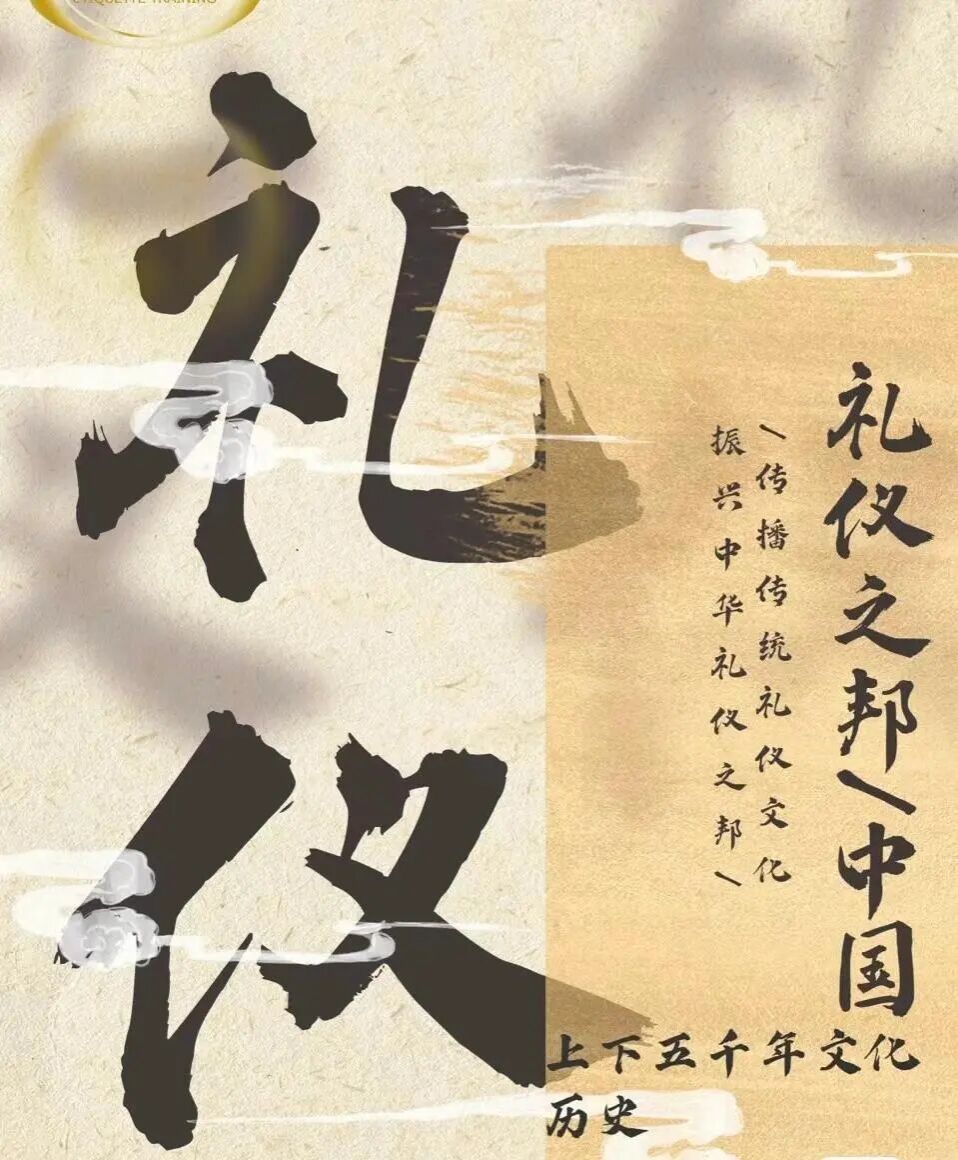 ETIQUETTE TRAINING
礼仪
礼仪之邦\中国
\传播传统礼仪文化
振兴中华礼仪之邦\
上下五千年文化
历史